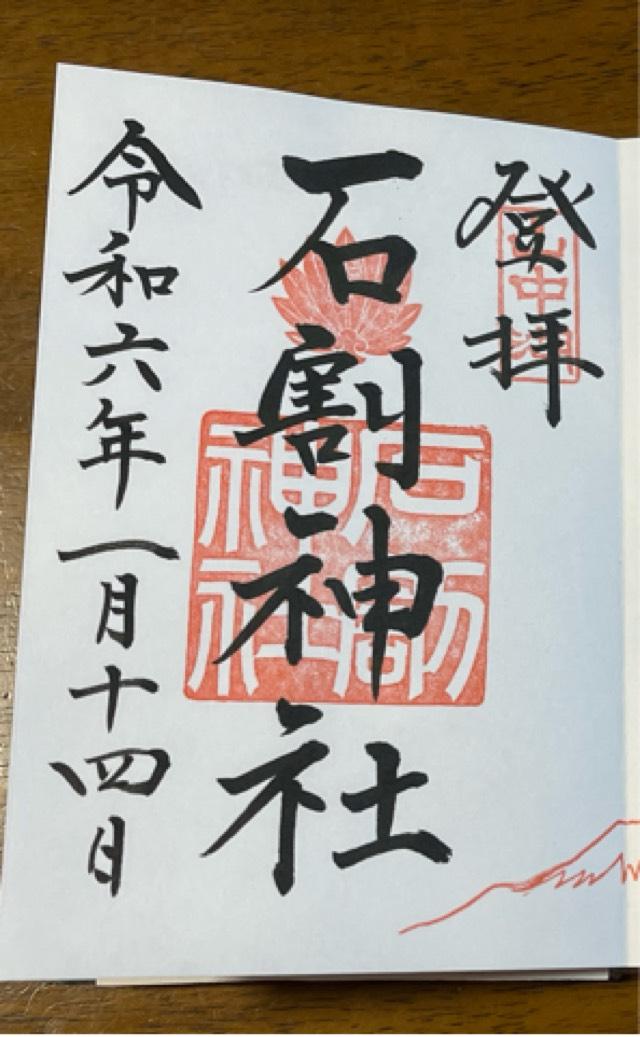 登拝
山中湖
石割神社
石割神社
令和六年一月十四日